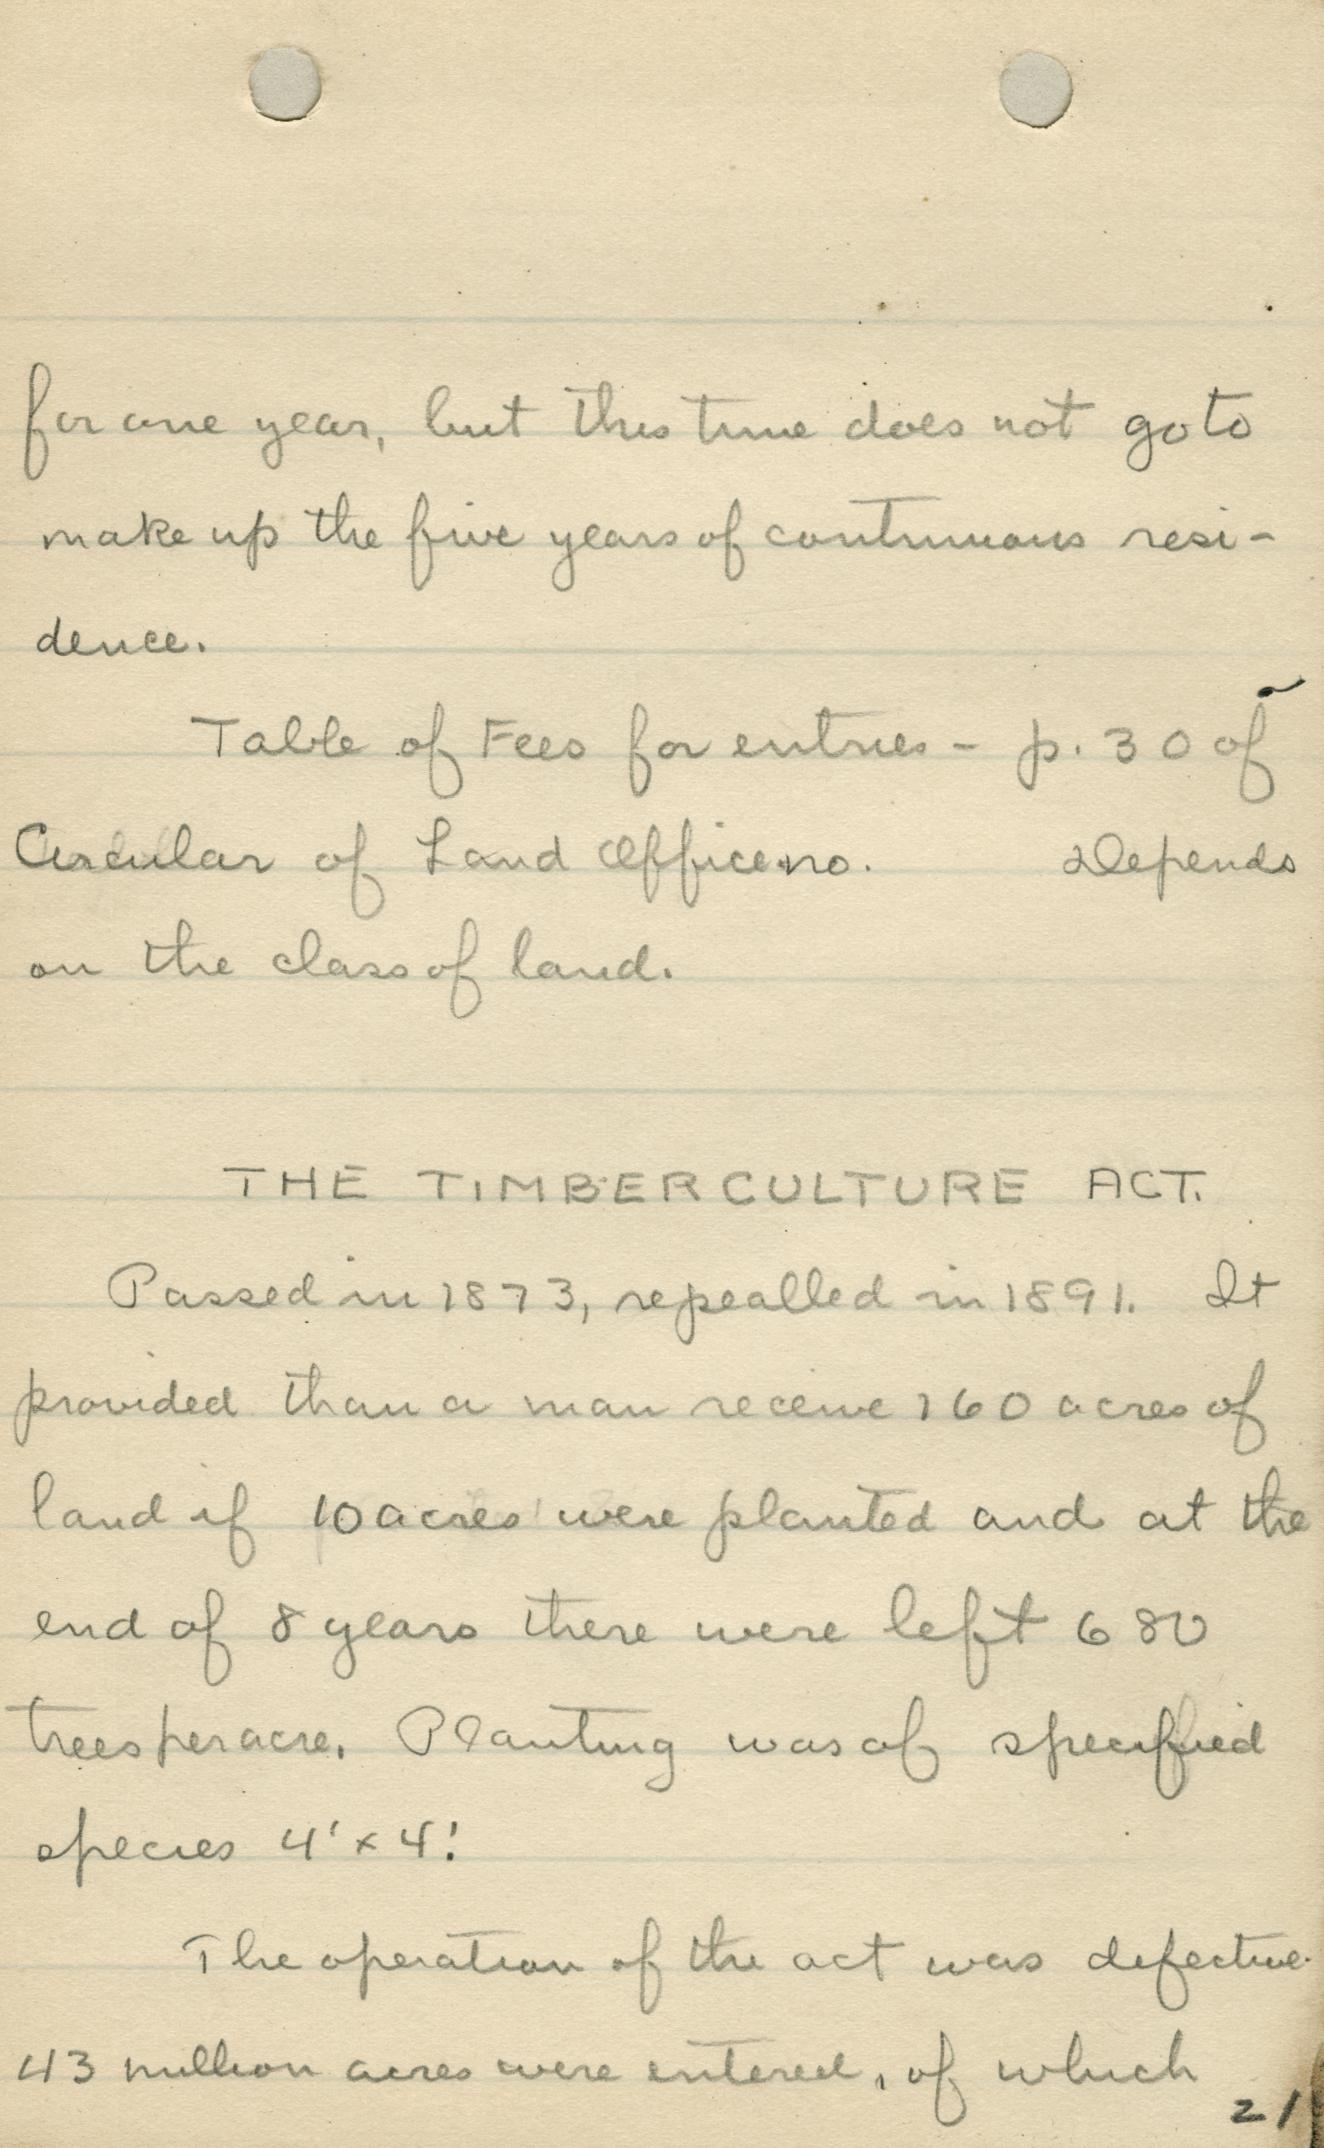 for one year, but this time does not go to
make up the five years of continuous resi-
dence.
Table of Fees for entries - p. 30 of
Circular of Land Office no. Depends
on the class of land.
THE TIMBERCULTURE ACT.
Passed in 1873, repealled in 1891. It
provided than a man receive 160 acres of
land if 10 acres were planted and at the
end of 8 years there were left 680
trees per acre. Planting was of specified
species 4' x 4'.
The operation of the act was defective.
43 million acres were entered, of which
21